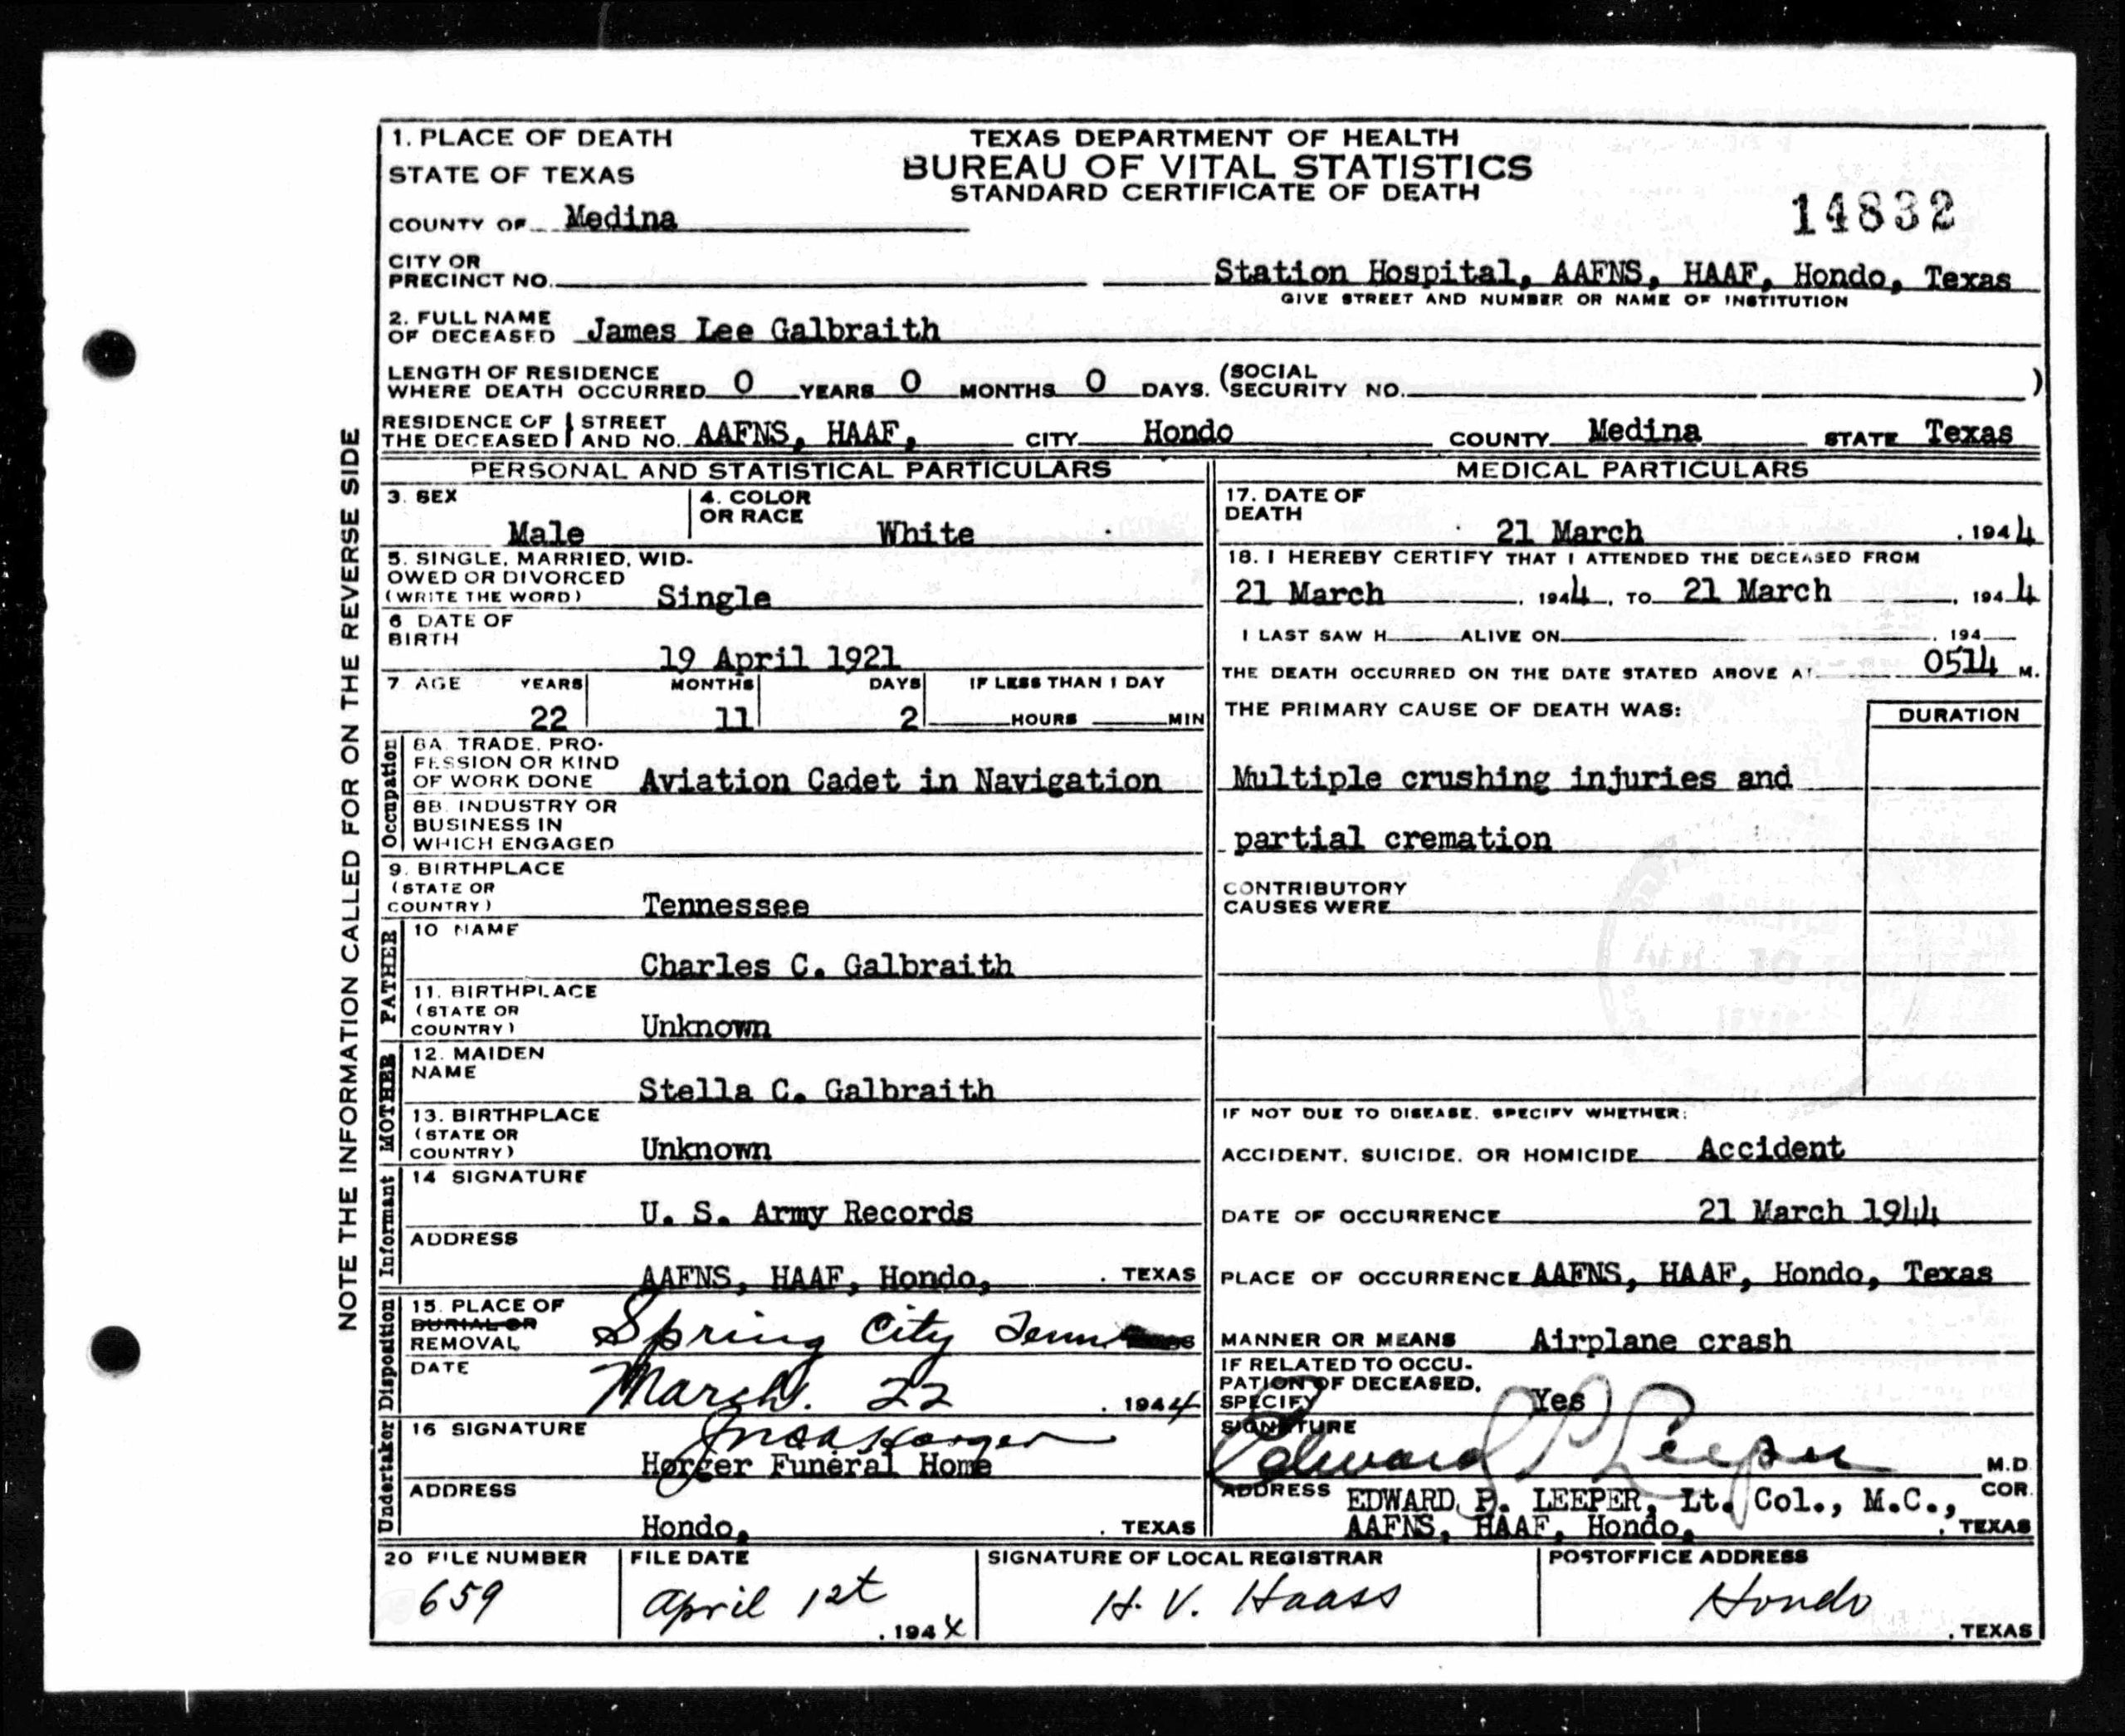 1. PLACE OF DEATH
STATE OF TEXAS
COUNTY OF Medina
TEXAS DEPARTMENT OF HEALTH
BUREAU OF VITAL STATISTICS
STANDARD CERTIFICATE OF DEATH
14832
CITY OR
PRECINCT NO.
Station Hospital, AAFNS, HAAF, Hondo, Texas
GIVE STREET AND NUMBER OR NAME OF INSTITUTION
2. FULL NAME
OF DECEASED James Lee Galbraith
LENGTH OF RESIDENCE
WHERE DEATH OCCURRED 0 YEARS 0 MONTHS 0 DAYS. (SOCIAL
(SECURITY NO. )
RESIDENCE OF THE DECEASED STREET AND NO. AAFNS, HAAF, CITY Hondo COUNTY Medina STATE Texas
NOTE THE INFORMATION CALLED FOR ON THE REVERSE SIDE
PERSONAL AND STATISTICAL PARTICULARS
3. SEX
Male
4. COLOR
OR RACE
White
5. SINGLE, MARRIED, WID-
OWED OR DIVORCED
(WRITE THE WORD) Single
6 DATE OF
BIRTH
19 April 1921
7 AGE YEARS MONTHS DAYS IF LESS THAN 1 DAY
22 11 2 HOURS MIN
Occupation
8A. TRADE, PRO-
FESSION OR KIND
OF WORK DONE Aviation Cadet in Navigation
8B. INDUSTRY OR
BUSINESS IN
WHICH ENGAGED
9. BIRTHPLACE
(STATE OR
COUNTRY) Tennessee
FATHER
10 NAME
Charles C. Galbraith
11. BIRTHPLACE
(STATE OR
COUNTRY) Unknown
MOTHER
12. MAIDEN
NAME
Stella C. Galbraith
13. BIRTHPLACE
(STATE OR
COUNTRY) Unknown
Informant
14 SIGNATURE
U. S. Army Records
ADDRESS
AAFNS, HAAF, Hondo, . TEXAS
Undertaker Disposition
15. PLACE OF
BURIAL OR
REMOVAL Spring City Tenn.
DATE
March. 22 . 1944
16 SIGNATURE
Horger Funeral Home
ADDRESS
Hondo, . TEXAS
MEDICAL PARTICULARS
17. DATE OF
DEATH
21 March . 1944
18. I HEREBY CERTIFY THAT I ATTENDED THE DECEASED FROM
21 March , 1944, TO 21 March , 1944
I LAST SAW H ALIVE ON , 194
THE DEATH OCCURRED ON THE DATE STATED ABOVE AT 0514 M.
THE PRIMARY CAUSE OF DEATH WAS: DURATION
Multiple crushing injuries and
partial cremation
CONTRIBUTORY
CAUSES WERE
IF NOT DUE TO DISEASE, SPECIFY WHETHER:
ACCIDENT, SUICIDE, OR HOMICIDE Accident
DATE OF OCCURRENCE 21 March 1944
PLACE OF OCCURRENCE AAFNS, HAAF, Hondo, Texas
MANNER OR MEANS Airplane crash
IF RELATED TO OCCU-
PATION OF DECEASED,
SPECIFY Yes
SIGNATURE
Edward P Leeper M.D.
COR.
ADDRESS EDWARD P. LEEPER, Lt. Col., M.C.,
AAFNS, HAAF, Hondo, . TEXAS
20 FILE NUMBER
659
FILE DATE
April 1st
. 1944
SIGNATURE OF LOCAL REGISTRAR
H. V. Haass
POSTOFFICE ADDRESS
Hondo
. TEXAS